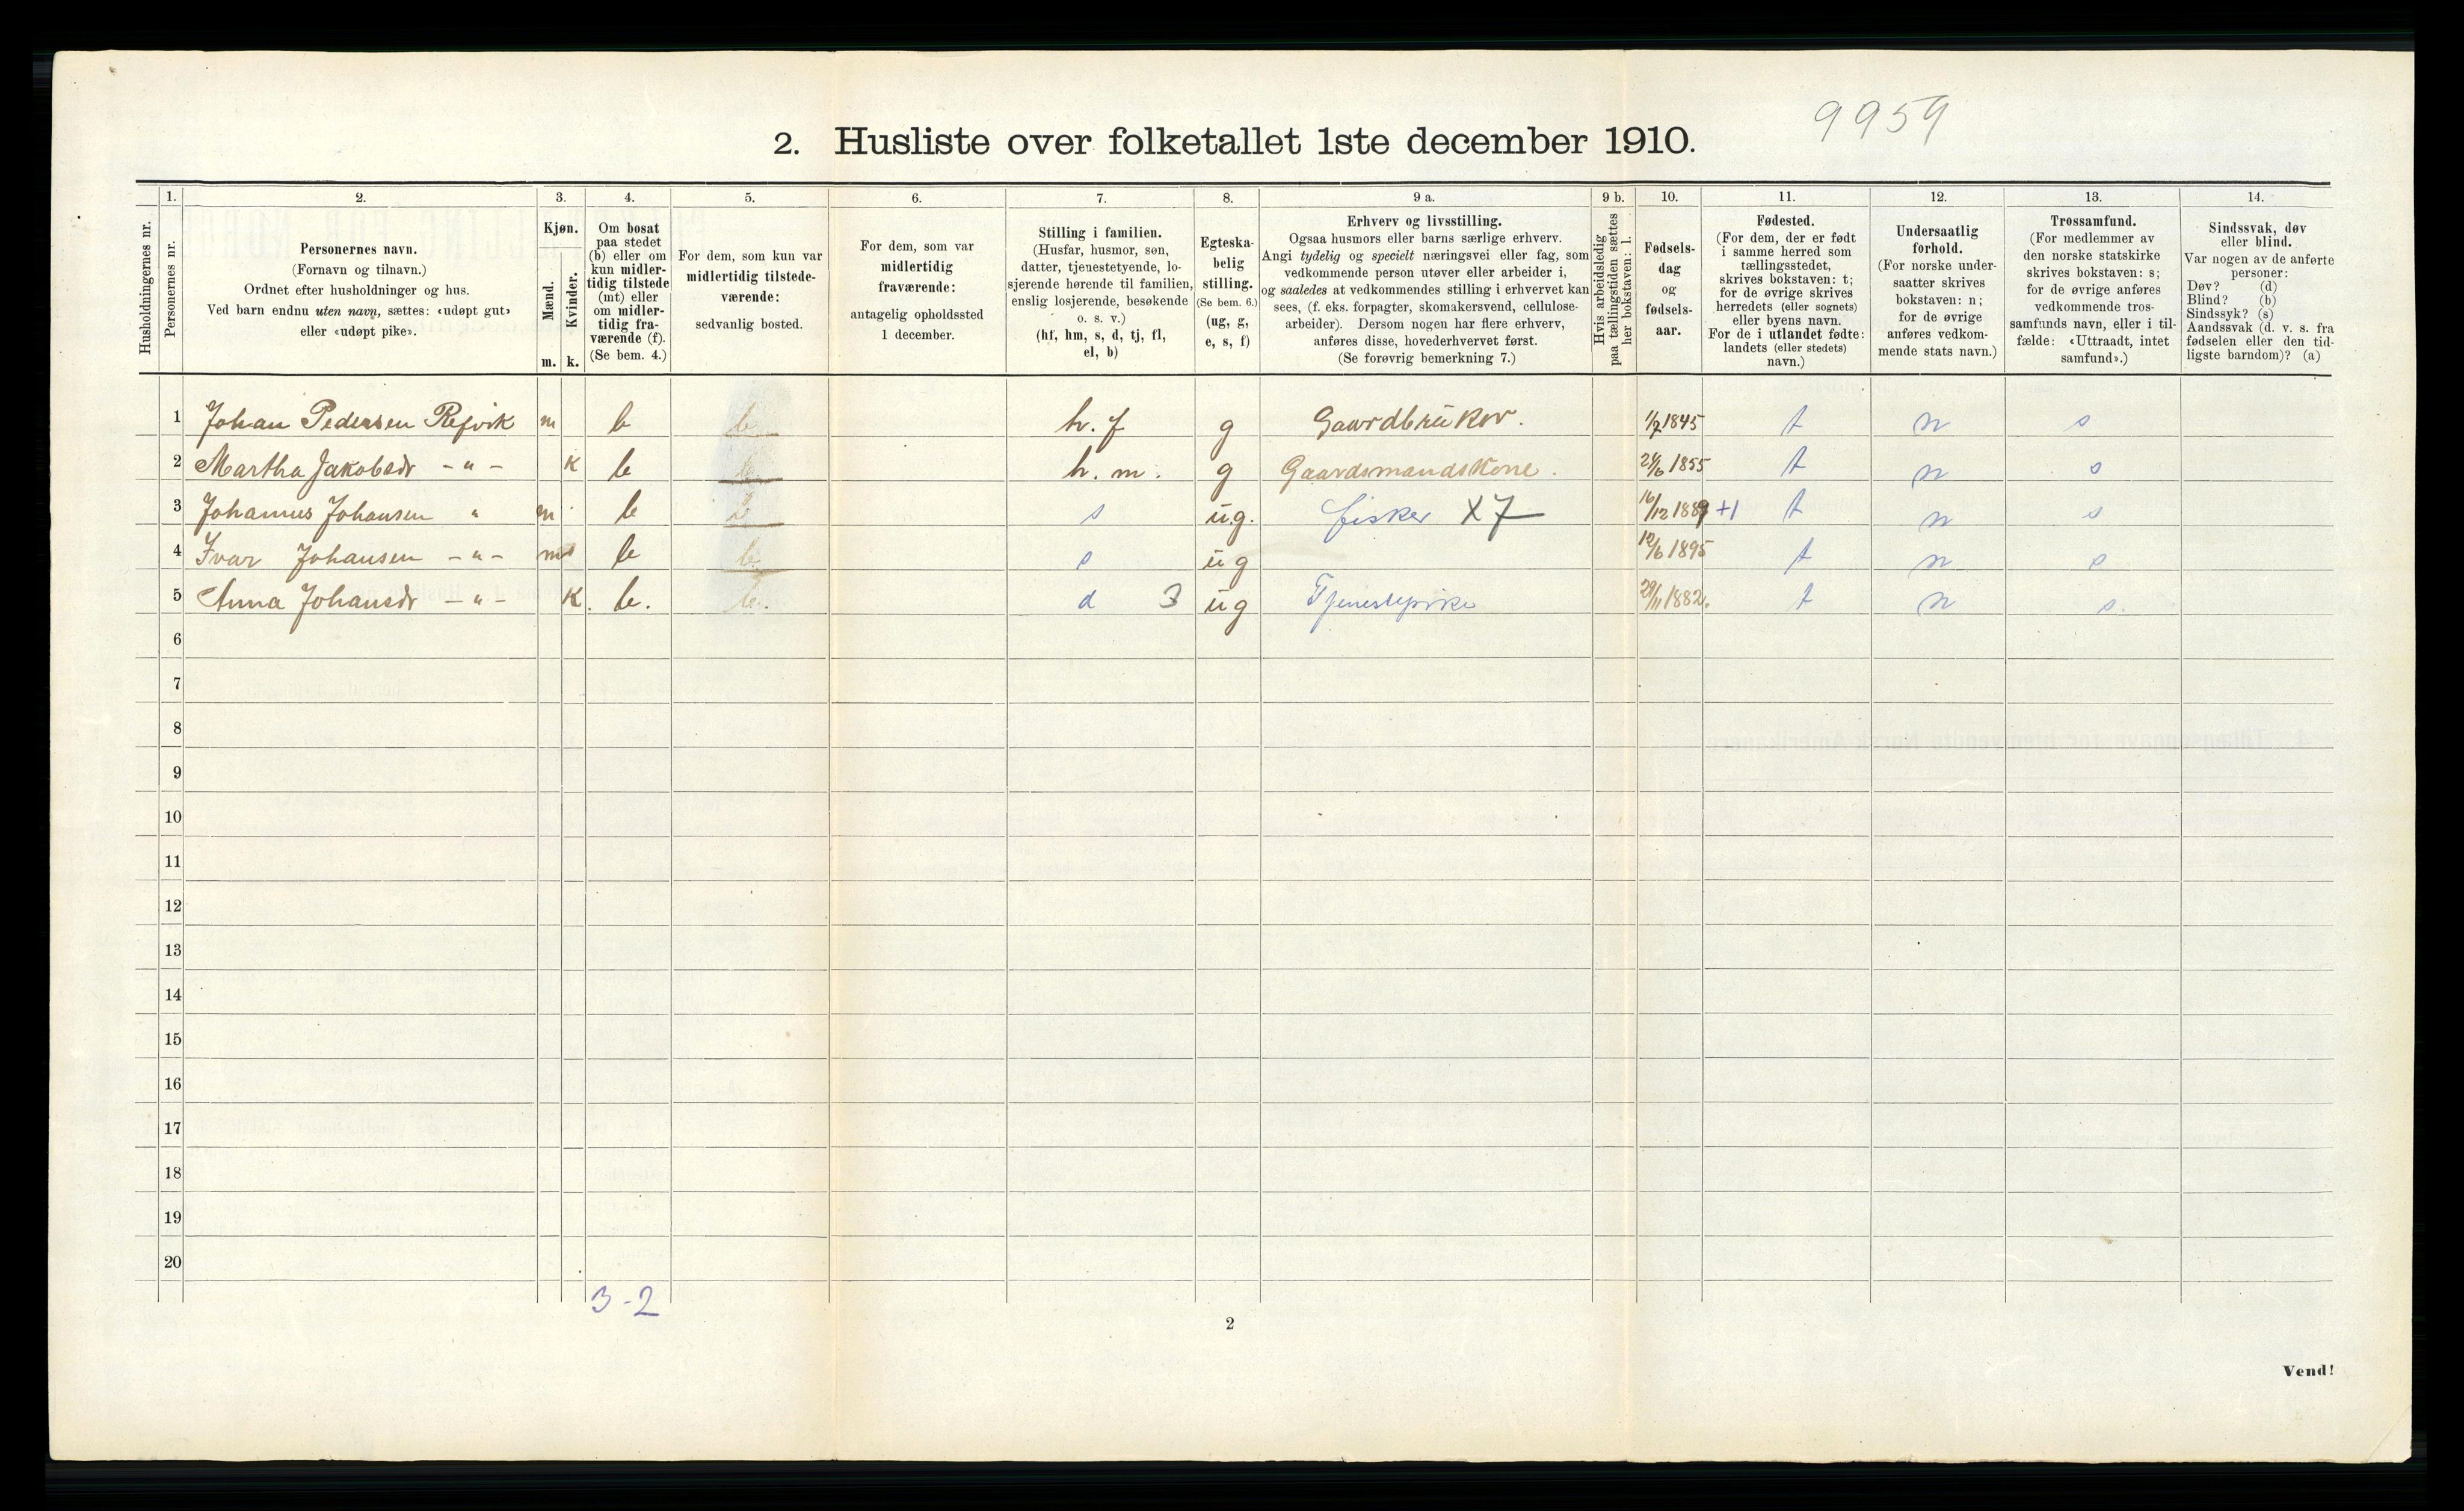 9959
2. Husliste over folketallet 1ste december 1910.
Husholdningernes nr.
1.
Personernes nr.
2.
Personernes navn.
(Fornavn og tilnavn.)
Ordnet efter husholdninger og hus.
Ved barn endnu uten navn, sættes: «udøpt gut»
eller «udøpt pike».
3.
Kjøn.
Mænd.
Kvinder.
m. k.
4.
Om bosat
paa stedet
(b) eller om
kun midler-
tidig tilstede
(mt) eller
om midler-
tidig fra-
værende (f).
(Se bem. 4.)
5.
For dem, som kun var
midlertidig tilstede-
værende:
sedvanlig bosted.
6.
For dem, som var
midlertidig
fraværende:
antagelig opholdssted
1 december.
7.
Stilling i familien.
(Husfar, husmor, søn,
datter, tjenestetyende, lo-
sjerende hørende til familien,
enslig losjerende, besøkende
o. s. v.)
(hf, hm, s, d, tj, fl,
el, b)
8.
Egteska-
belig
stilling.
(Se bem. 6.)
(ug, g,
e, s, f)
9 a.
Erhverv og livsstilling.
Ogsaa husmors eller barns særlige erhverv.
Angi tydelig og specielt næringsvei eller fag, som
vedkommende person utøver eller arbeider i,
og saaledes at vedkommendes stilling i erhvervet kan
sees, (f. eks. forpagter, skomakersvend, cellulose-
arbeider). Dersom nogen har flere erhverv,
anføres disse, hovederhvervet først.
(Se forøvrig bemerkning 7.)
9 b.
Hvis arbeidsledig
paa tællingstiden sættes
her bokstaven: l.
10.
Fødsels-
dag
og
fødsels-
aar.
11.
Fødested.
(For dem, der er født
i samme herred som
tællingsstedet,
skrives bokstaven: t;
for de øvrige skrives
herredets (eller sognets)
eller byens navn.
For de i utlandet fødte:
landets (eller stedets)
navn.)
12.
Undersaatlig
forhold.
(For norske under-
saatter skrives
bokstaven: n;
for de øvrige
anføres vedkom-
mende stats navn.)
13.
Trossamfund.
(For medlemmer av
den norske statskirke
skrives bokstaven: s;
for de øvrige anføres
vedkommende tros-
samfunds navn, eller i til-
fælde: «Uttraadt, intet
samfund».)
14.
Sindssvak, døv
eller blind.
Var nogen av de anførte
personer:
Døv? (d)
Blind? (b)
Sindssyk? (s)
Aandssvak (d. v. s. fra
fødselen eller den tid-
ligste barndom)? (a)
1 Johan Pedersen Refvik m b b h. f g Gaardbruker. 1/7 1845 t n s
2 Martha Jakobsdr - " - k b b h. m. g Gaardsmandskone. 24/6 1855 t n s
3 Johannes Johansen " m b s ug. fisker X7 16/12 1889 +1 t n s
4 Ivar Johansen - " - m b b s ug 12/6 1895 t n s
5 Anna Johansdr - " - K. b. b. d 3 ug Tjenestepike 29/11 1882. t n s.
6
7
8
9
10
11
12
13
14
15
16
17
18
19
20
3-2
2
Vend!